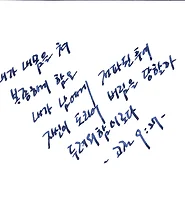 내가 내 몸을 쳐
복종하게 함은
내가 남에게 전파한 후에
자신이 도리어 버림을 당할까
두려워함이로다
- 고전 9:27 -